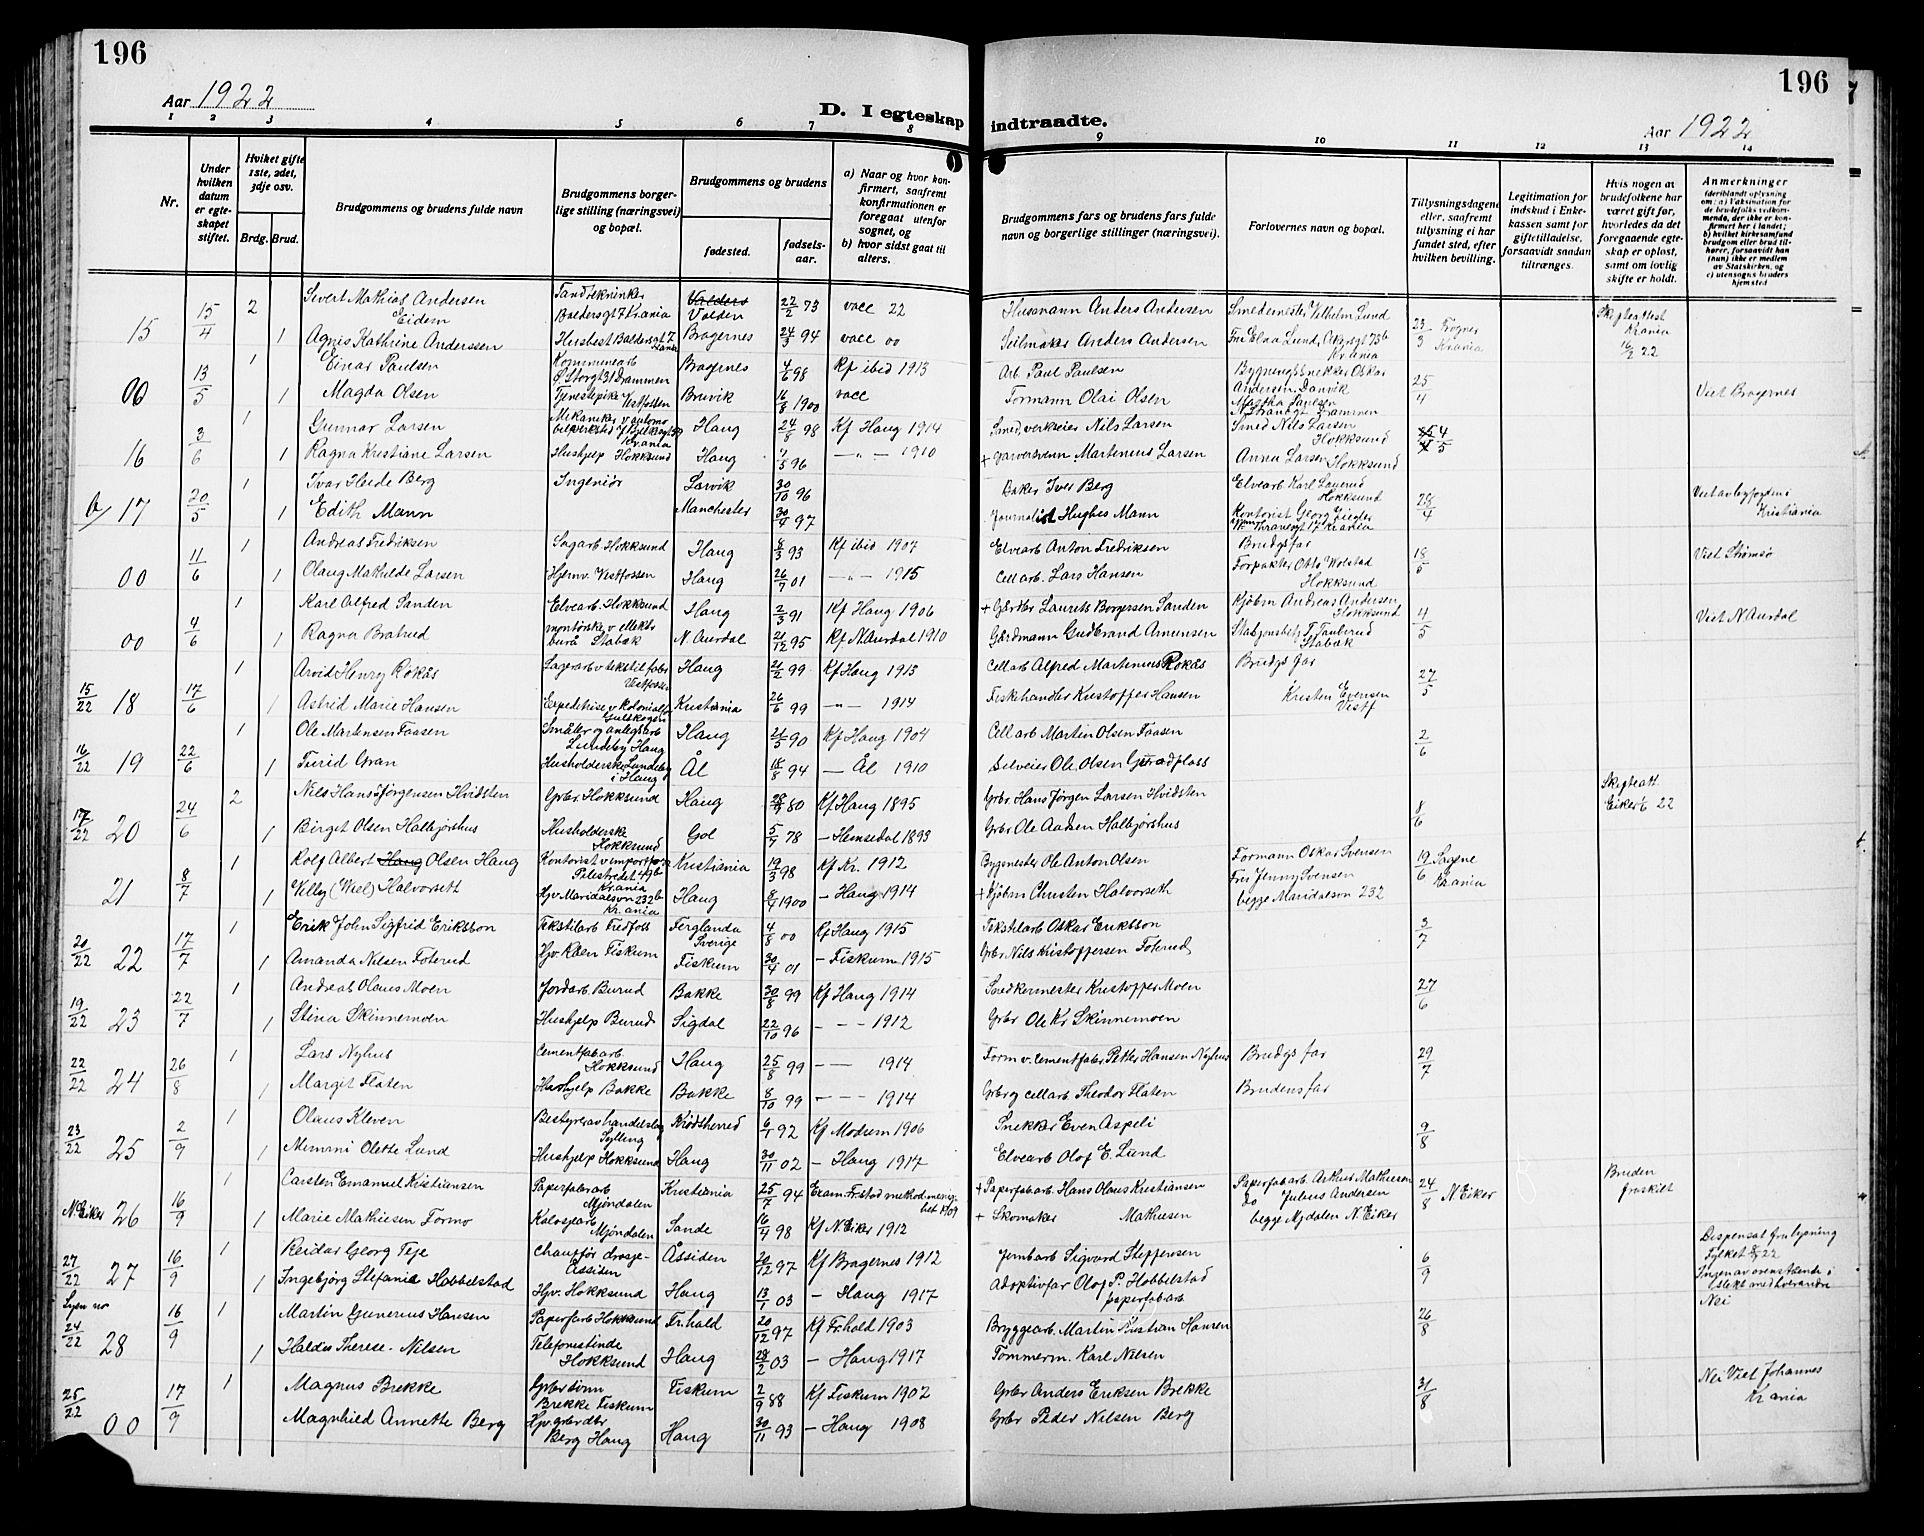 196
Aar 1922
D. I egteskap indtraadte.
196
Aar 1922
1 2 3 4 5 6 7 8 9 10 11 12 13 14
Nr.
Under hvilken datum er egteskapet stiftet.
Hviket gifte 1ste, 2det, 3dje osv.
Brdg. Brud.
Brudgommens og brudens fulde navn
Brudgommens borgerlige stilling (næringsvei) og bopæl.
Brudgommens og brudens
fødested.
fødselsaar.
a) Naar og hvor konfirmert, saafremt konfirmationen er foregaat utenfor sognet, og
b) hvor sidst gaat til alters.
Brudgommens fars og brudens fars fulde navn og borgerlige stillinger (næringsvei).
Forlovernes navn og bopæl.
Tillysningsdagene eller, saafremt tillysning ei har fundet sted, efter hvilken bevilling.
Legitimation for indskud i Enkekassen samt for giftetilladelse, forsaavidt saadan tiltrænges.
Hvis nogen av brudefolkene har været gift før, hvorledes da det foregaaende egteskap er opløst, samt om lovlig skifte er holdt.
Anmerkninger (deriblandt oplysning om: a) Vaksination for de brudefolks vedkommende, der ikke er konfirmert her i landet; b) hvilket kirkesamfund brudgom eller brud tilhører, forsaavidt han (hun) ikke er medlem av Statskirken, og c) utensogns bruders hjemsted
15 15/4 2 Sivert Mathias Andersen Eidem Tandtekniker Baldersgt 7 Krania Valders Volden 22/2 73 vacc 22 Husmann Anders Andersen Smedemester Vilhelm Lund 23/3 Frogner Krania Skifteattest Krania 16/2 22
1 Agnes Kathrine Anderssen Baldersgt 7 Krania Bragernes 24/3 94 vacc 00 Seilmaker Anders Andersen Fru Elna Lund, Akersgt 73b Krania
00 13/5 1 Einar Paulsen Kommunearb Ø Storgt 31 Drammen Bragernes 4/6 98 Kf ibid 1913 Arb. Paul Paulsen Bygningssnekker Oskar Andersen, Danvik 25/4 Viet Bragernes
1 Magda Olsen Tjenestepike Vestfossen Bruvik 16/8 1900 vacc Formann Olai Olsen
16 3/6 1 Gunnar Larsen Haug 24/8 98 Kf Haug 1914 Smed, verkseier Nils Larsen Smed Nils Larsen Hokksund 4/5
1 Ragna Kristiane Larsen Hushjelp Hokksund Haug 7/5 96 — " — 1910 + Garversvenn Martenius Larsen Anna Larsen Hokksund
17 20/5 1 Ivar Heide Berg Ingeniør Larvik 30/10 96 Baker Iver Berg Elvearb Karl Laurud Hokksund 28/4 Viet av byfogden i Kristiania
1 Edith Mann Manchester 30/4 97 Journalist Hughes Mann Kontorist Georg Ziegler Thranesgt 17 Krania
00 11/6 1 Andreas Fredriksen Sagarb Hokksund Haug 8/3 93 Kf ibid 1907 Elvearb Anton Fredriksen Brudgsfar 18/5 Viet Strømsø
1 Olaug Mathilde Larsen Hjemv. Vestfossen Haug 26/7 01 — " — 1915 Cellarb. Lars Hansen Forpakter Otto Wolstad Hokksund
00 4/6 1 Karl Alfred Sanden Elvearb Hokksund Haug 2/3 91 Kf Haug 1906 + Gårdbr Laurits Borgersen Sanden Kjøbm Andreas Andersen Hokksund 4/5 Viet N Aurdal
1 Ragna Bratrud Stabæk N. Aurdal 21/12 95 Kf N Aurdal 1910 Gårdmann Gudbrand Amunsen Stabæk
15/22 18 17/6 1 Arvid Henry Rokås Lagerarb v tekstilfabr Vestfossen Haug 21/2 99 Kf Haug 1913 Cellarb Alfred Martenius Rokås Brudgs far 27/5
1 Astrid Marie Hansen Kristiania 26/6 99 — " — 1914 Fiskehandler Kristoffer Hansen Kristen Evensen Vestf
16/22 19 22/6 1 Ole Martensen Faasen Småbr og anlegsarb Lundeby Haug Haug 21/5 90 Kf Haug 1904 Cellarb Martin Olsen Faasen 2/6
1 Turid Gran Husholderske Lundeby i Haug Ål 18/8 94 — Ål 1910 Selveier Ole Olsen
17/22 20 24/6 2 Nils Hans Jørgensen Hvidsten Grbr. Hokksund Haug 80 Kf Haug 1895 Grbr Hans Jørgen Larsen Hvidsten 8/6 Skifteatt. Eiker 22
1 Birget Olsen Halbjørshus Husholderske Hokksund Gol 5/7 78 — Hemsedal 1893 Grbr Ole Aadsen Halbjørshus
21 8/7 1 Rolf Albert Haug Olsen Haug Kontorist v import Pilestredet 49b Krania Kristiania 19/3 98 Kf Kr. 1912 Bygmester Ole Anton Olsen Formann Oskar Svensen 19/6 Sagene Krania
1 Villy (Wiel) Halvorseth Hjv Maridalsvn 232b Krania Haug 8/7 1900 — Haug 1914 + Kjøbm Christen Halvorseth Frk Jenny Svensen begge Maridalsvn 232
20/22 22 17/7 1 Erik John Sigfrid Eriksson Tekstilarb Fredfoss Ferglanda Sverige 4/8 00 Kf Haug 1915 Tekstilarb Oskar Eriksson 3/7
1 Amanda Nilsen Foterud Hjv. Råen Fiskum Fiskum 30/4 01 — Fiskum 1915 Grbr Nils Kristoffersen Foterud
19/22 23 22/7 1 Andreas Olaus Moen Jordarb. Burud Bakke 30/8 99 Kf Haug 1914 Snedkermester Kristoffer Moen 27/6
1 Stina Skinnemoen Hushjelp Burud Sigdal 22/10 96 — — 1912 Grbr Ole Kr Skinnemoen
22/22 24 26/8 1 Lars Nyhus Cementfabarb. Hokksund Haug 25/8 99 — — 1914 Form v. cementfabr Petter Hansen Nyhus Brudgs far 29/7
1 Margit Flaten Hushjelp Bakke Bakke 8/10 99 — — 1914 Grbr og cellarb Theodor Flaten Brudens far
23/22 25 2/9 1 Olaus Kleven Bestyrer av handelslag Sylling Krødsherred 6/1 92 Kf Modum 1906 Snekker Even Aspeli 9/8
1 Memmi Olette Lund Hushjelp Hokksund Haug 30/11 02 — Haug 1917 Elvearb Olof E. Lund
N. Eiker 26 16/9 1 Carsten Emanuel Kristiansen Paperfabarb Mjøndalen Kristiania 25/7 94 + Paperfabarb. Hans Olaus Kristiansen Paperfabarb. Arthur Mathiesen 24/8 N Eiker Bruden fraskilt
1 Marie Mathiesen Formo Mjøndalen Sande 16/4 98 Kf N. Eiker 1912 + Skomaker Mathiesen Do Julius Andersen begge Mjdalen N. Eiker
27/22 27 16/9 1 Reidar Georg Teje Chauffør drosje- Åssiden Åssiden 20/12 97 Kf Bragernes 1912 Jernbarb Sigvard Steffensen 6/9 Dispensat fra lysning Fylket 22
1 Ingebjørg Stefanie Hobbelstad Hjv. Hokksund Haug 13/1 03 — Haug 1917 Adoptivfar Olof P. Hobbelstad paperfabarb
24/22 28 16/9 1 Martin Gunerius Hansen Paperfarb Hokksund Fr.hald 20/12 97 Kf Fr.hald 1903 Bryggearb. Martin Kristian Hansen 26/8 Nei
1 Haldis Therese Nilsen Telefonistinde Hokksund Haug 28/2 03 — Haug 1917 Tømmerm. Karl Nilsen
25/22 00 17/9 1 Magnus Brekke Grbr sønn Brekke Fiskum Fiskum 2/9 88 Kf Fiskum 1902 Grbr Anders Eriksen Brekke 31/8 Nei Viet Johannes Krania
1 Magnhild Annette Berg Hjv. grbrdtr Berg Haug Haug 30/11 93 — Haug 1908 Grbr Peder Nilsen Berg